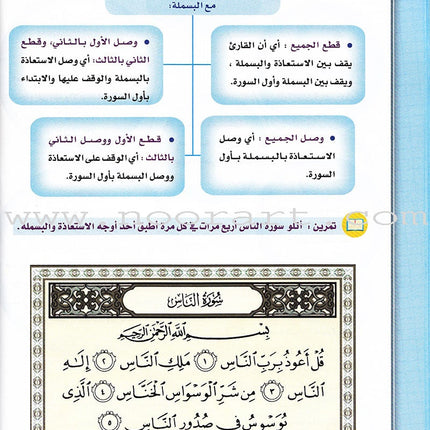 مع البسملة:
• قطع الجميع : أي أن القارئ
يقف بين الاستعاذة والبسملة ،
ويقف بين البسملة وأول السورة.
• وصل الأول بالثاني، وقطع
الثاني بالثالث: أي وصل الاستعاذة
بالبسملة والوقف عليها والابتداء
بأول السورة.
• وصل الجميع : أي وصل
الاستعاذة بالبسملة بأول
السورة.
• قطع الأول ووصل الثاني
بالثالث: أي الوقف على الاستعاذة
ووصل البسملة بأول السورة.
www.noorart.com
تمرين : أتلو سورة الناس أربع مرات في كل مرة أطبق أحد أوجه الاستعاذة والبسملة.
سُورَةُ النَّاسِ
بِسْمِ اللَّهِ الرَّحْمَٰنِ الرَّحِيمِ
قُلْ أَعُوذُ بِرَبِّ النَّاسِ ١ مَلِكِ النَّاسِ ٢ إِلَٰهِ
النَّاسِ ٣ مِن شَرِّ الْوَسْوَاسِ الْخَنَّاسِ ٤ الَّذِي
يُوَسْوِسُ فِي صُدُورِ النَّاسِ ٥